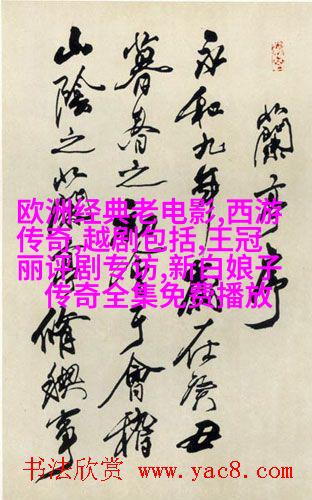 蘭亭序
永和九年歲在癸丑
暮春之初會于會稽
山陰之蘭亭脩禊事
欧洲经典老电影,西游
传奇,越剧包括,王冠
丽评剧专访,新白娘子
传奇全集免费播放
书法欣赏 www.yac8.com